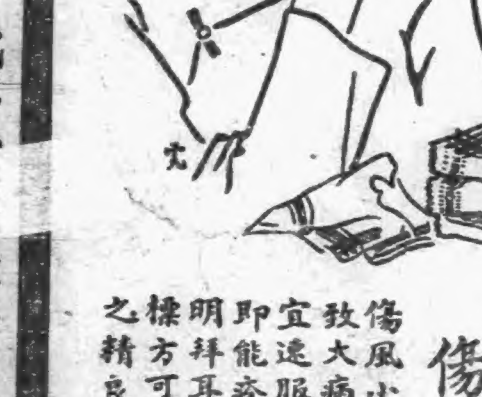 傷
傷風小
致大病
宜速服
即能痊
明拜耳
標方可
之精良